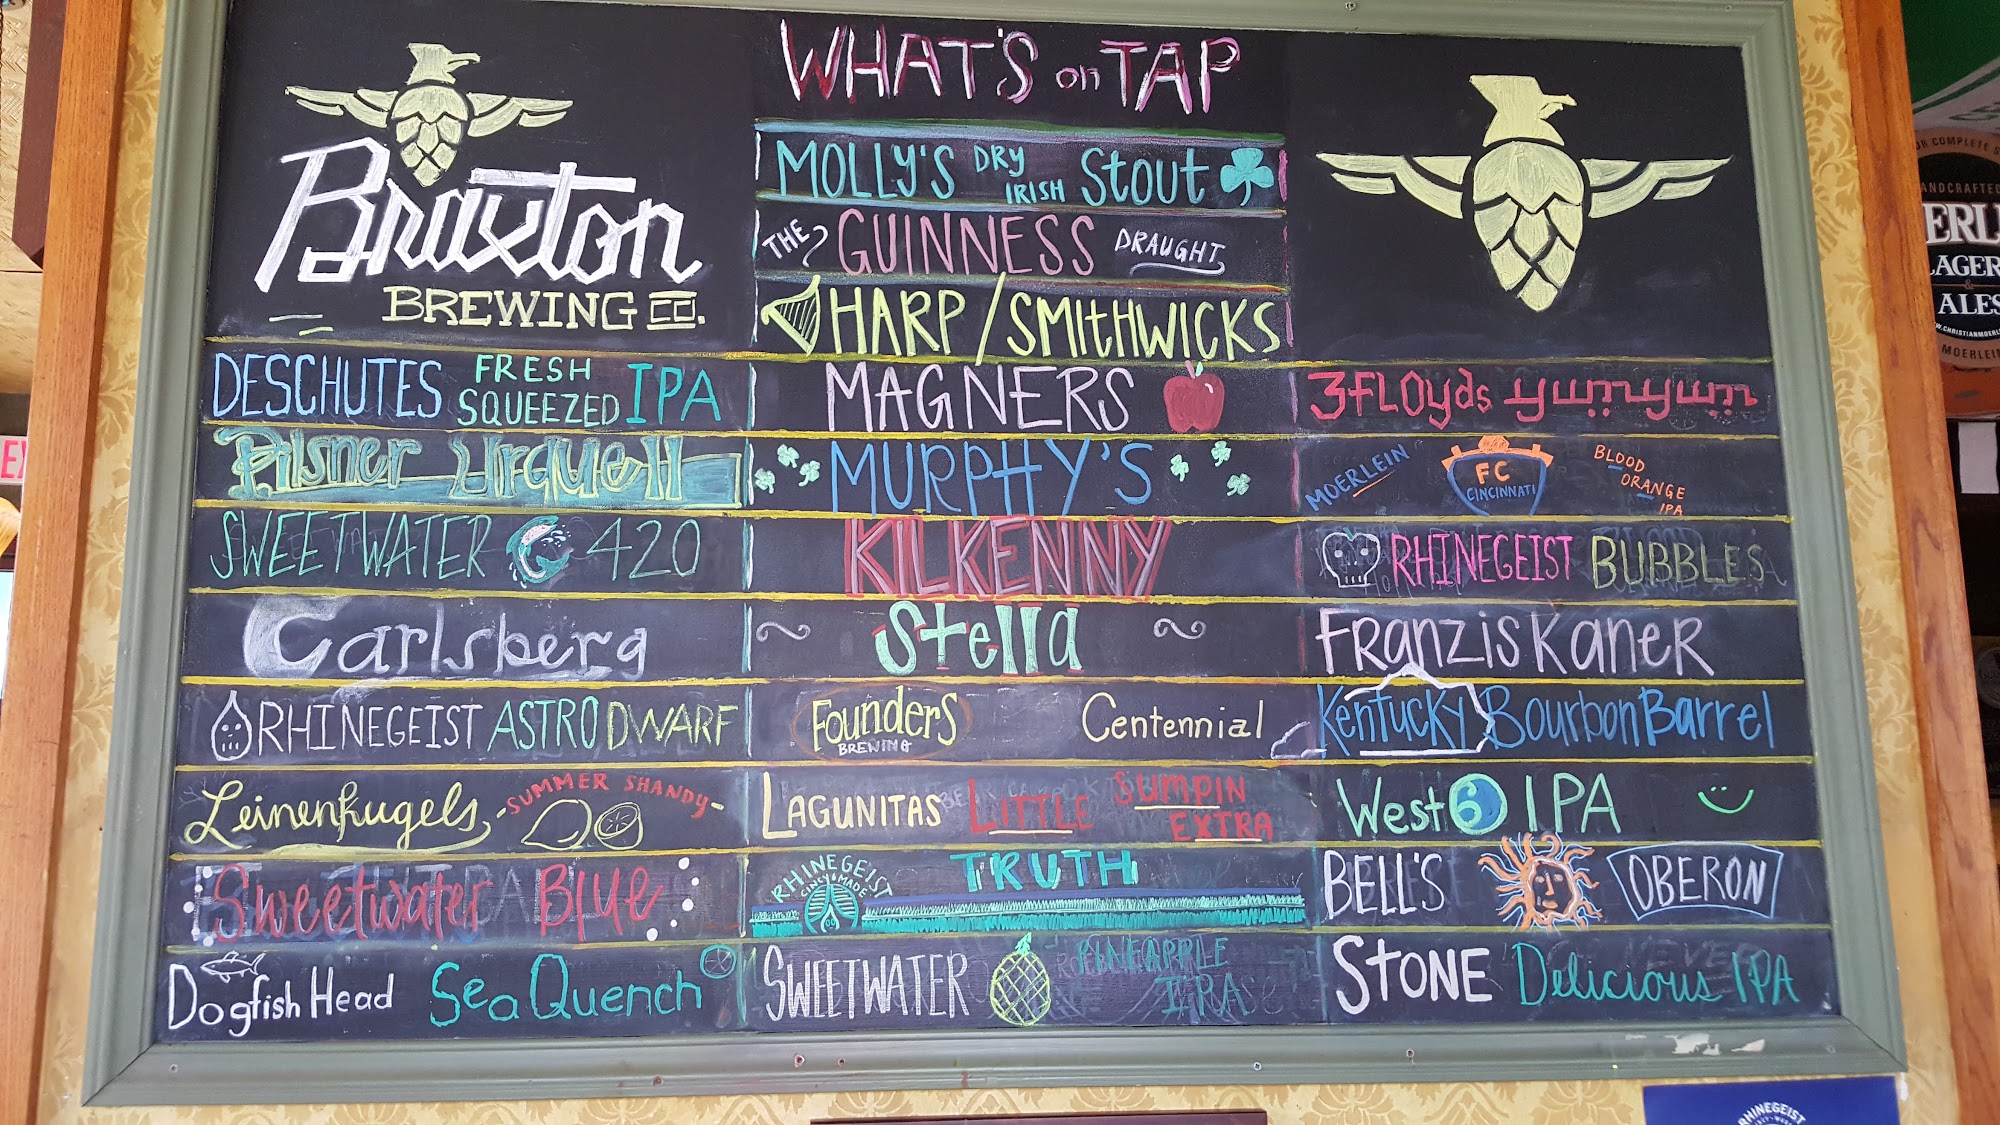 WHAT'S on TAP
Braxton
BREWING CO.
MOLLY'S DRY IRISH Stout
THE GUINNESS DRAUGHT
HARP/SMITHWICKS
DESCHUTES FRESH SQUEEZED IPA
MAGNERS
3FLOYds yumyum
Pilsner Urquell
MURPHY'S
MOERLEIN FC CINCINNATI BLOOD ORANGE IPA
SWEETWATER 420
KILKENNY
RHINEGEIST BUBBLES
Carlsberg
Stella
FRANZISKANER
RHINEGEIST ASTRO DWARF
Founders BREWING Centennial
Kentucky Bourbon Barrel
Leinenkugels -SUMMER SHANDY-
LAGUNITAS LITTLE SUMPIN EXTRA
West 6 IPA
Sweetwater Blue
RHINEGEIST CINCY MADE TRUTH
BELL'S OBERON
Dogfish Head SeaQuench
SWEETWATER PINEAPPLE IPA
STONE Delicious IPA
LAGER
&
ALES
MOERLEIN
RHINEGEIST